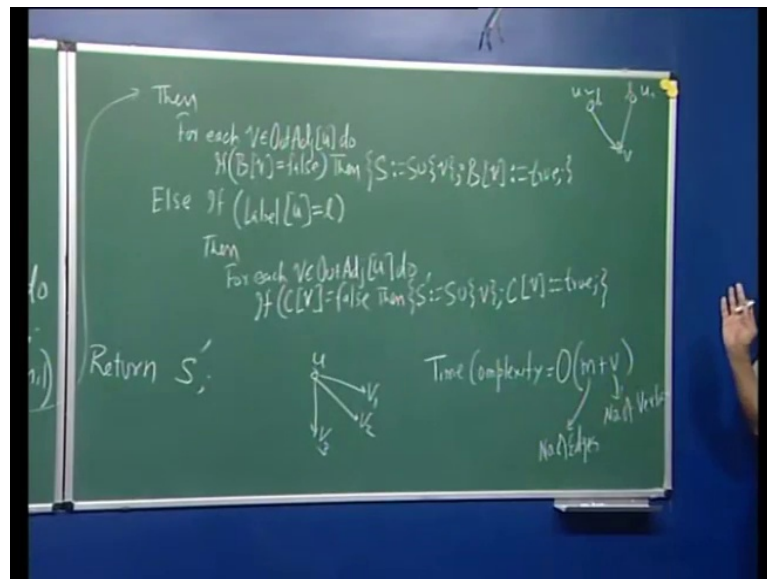 Then
For each V∈OutAdj[u] do
If (B[v]=false) Then {S:=S∪{v}; B[v]:=true;}
Else If (Label[u]=l)
Then
For each V∈OutAdj[u] do
If (C[v]=false Then {S':=S∪{v}; C[v]:=true;}
Return S';
Time Complexity = O(m+v)
No. of Edges
No. of
u
V1
V2
V3
u
u
v
do